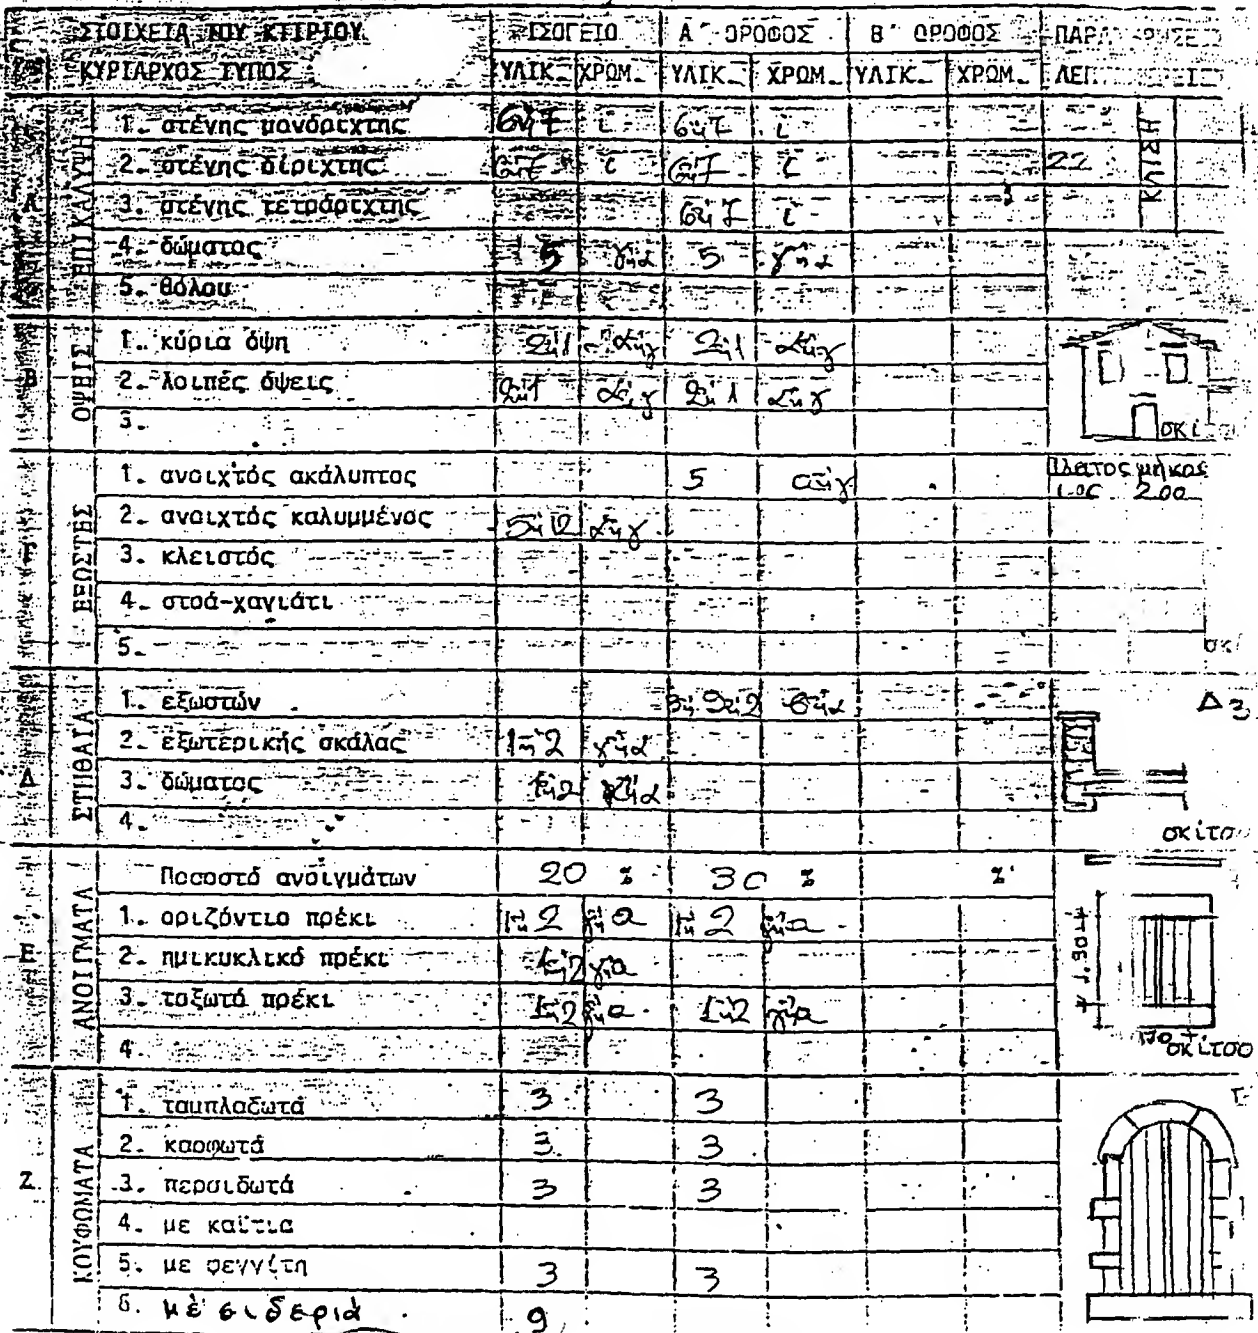 ΣΤΟΙΧΕΙΑ ΤΟΥ ΚΤΙΡΙΟΥ ΙΣΟΓΕΙΟ Α΄ ΟΡΟΦΟΣ Β΄ ΟΡΟΦΟΣ
ΚΥΡΙΑΡΧΟΣ ΤΥΠΟΣ ΥΛΙΚ. ΧΡΩΜ. ΥΛΙΚ. ΧΡΩΜ. ΥΛΙΚ. ΧΡΩΜ.
Α ΕΠΙΚΑΛΥΨΗ
1. στέγης μονόριχτης 6ή7 ι 6ή7 ι ΚΛΙΣΗ
2. στέγης δίριχτης 6ή7 ι 6ή7 ι 22
3. στέγης τετράριχτης 6ή7 ι
4. δώματος 5 γήα 5 γήα
5. θόλου
Β ΟΨΕΙΣ
1. κύρια όψη 2ή1 αήγ 2ή1 αήγ
2. λοιπές όψεις 2ή1 αήγ 2ή1 αήγ
3. σκίτσο
Γ ΕΞΩΣΤΕΣ
1. ανοιχτός ακάλυπτος 5 αήγ Πλάτος μήκος
2.00
2. ανοιχτός καλυμμένος 5ή12 αήγ
3. κλειστός
4. στοά-χαγιάτι
5.
Δ ΣΤΗΘΑΙΑ
1. εξωστών Δ3
2. εξωτερικής σκάλας 1ή2 γήα
3. δώματος 1ή2 γήα
4. σκίτσο
Ε ΑΝΟΙΓΜΑΤΑ
Ποσοστό ανοιγμάτων 20 % 30 % %
1. οριζόντιο πρέκι 1ή2 γήα 1ή2 γήα
2. ημικυκλικό πρέκι 1ή2 γήα
3. τοξωτό πρέκι 1ή2 γήα 1ή2 γήα
1.90
4. σκίτσο
Ζ ΚΟΥΦΩΜΑΤΑ
1. ταμπλαδωτά 3 3
2. καρφωτά 3 3
3. περσιδωτά 3 3
4. με καΐτια
5. με φεγγίτη 3 3
6. μέ σιδεριά 9